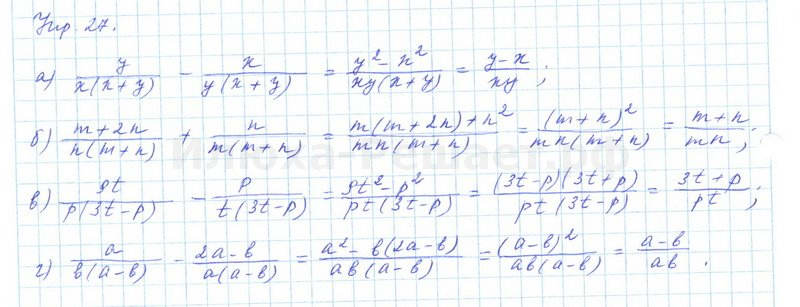 Упр. 27.
а) y/(x(x+y)) - x/(y(x+y)) = (y²-x²)/(xy(x+y)) = (y-x)/(xy);
б) (m+2n)/(n(m+n)) + n/(m(m+n)) = (m(m+2n)+n²)/(mn(m+n)) = (m+n)²/(mn(m+n)) = (m+n)/(mn);
в) 9t/(p(3t-p)) - p/(t(3t-p)) = (9t²-p²)/(pt(3t-p)) = ((3t-p)(3t+p))/(pt(3t-p)) = (3t+p)/(pt);
г) a/(b(a-b)) - (2a-b)/(a(a-b)) = (a²-b(2a-b))/(ab(a-b)) = (a-b)²/(ab(a-b)) = (a-b)/(ab).